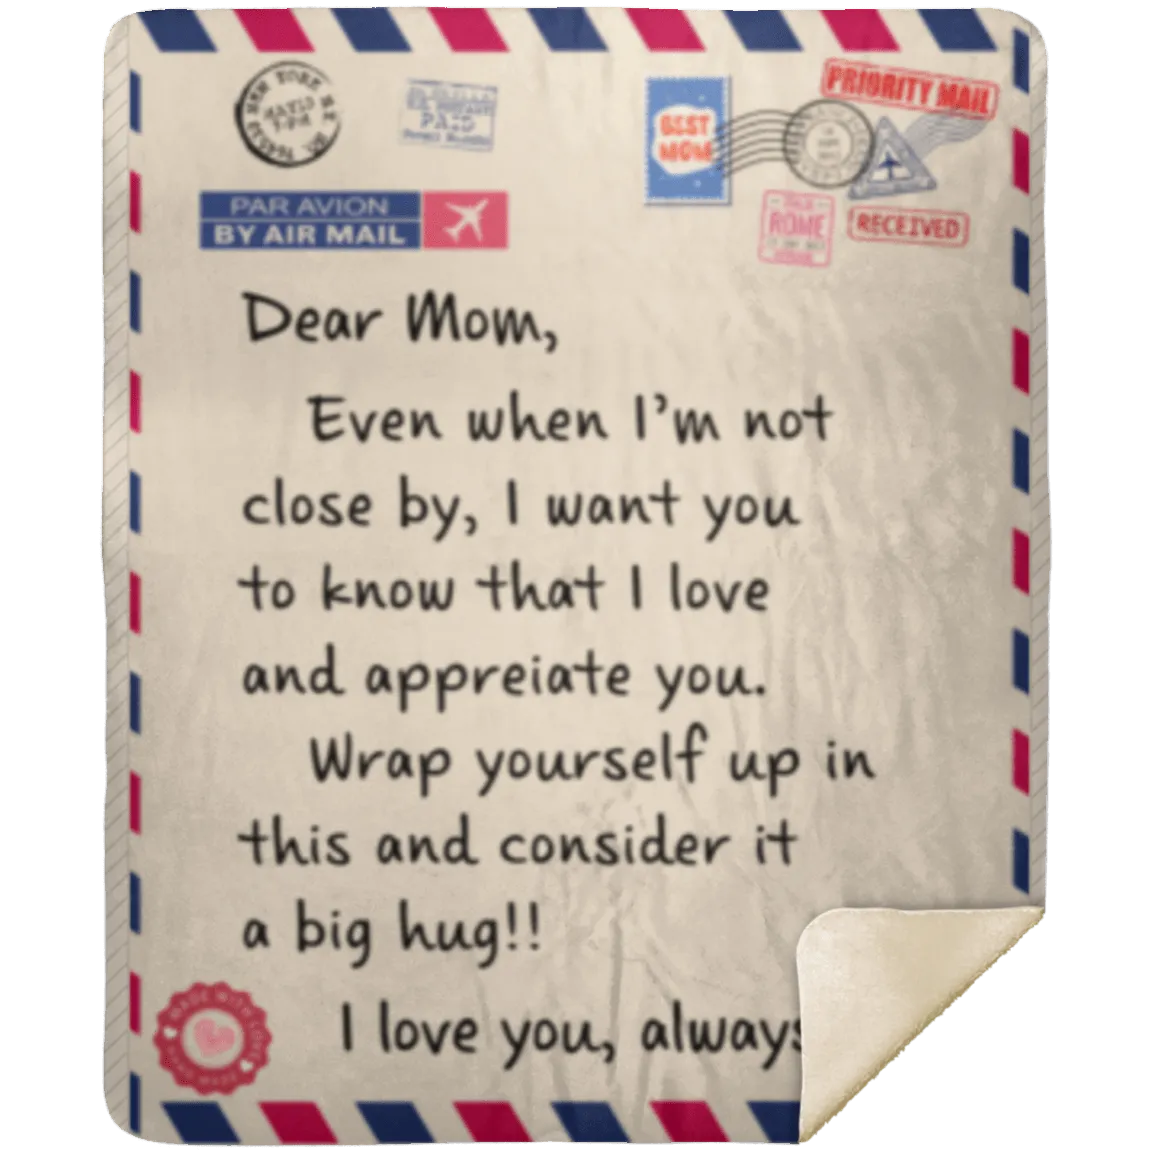 PRIORITY MAIL
NEW YORK N.Y.
PAID
BEST
MOM
PAR AVION
BY AIR MAIL
ROME
RECEIVED
Dear Mom,
Even when I'm not
close by, I want you
to know that I love
and appreiate you.
Wrap yourself up in
this and consider it
a big hug!!
I love you, always
MADE WITH LOVE